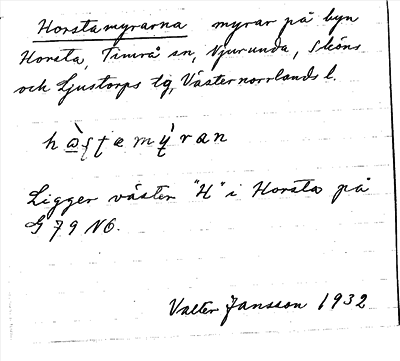 Horstamyrarna myrar på byn
Horsta, Timrå sn, Njurunda, Sköns
och Ljustorps tg, Västernorrlands l.
hàʂʈemỳran
Ligger väster "H" i Horsta på
G 79 NO.
Valter Jansson 1932